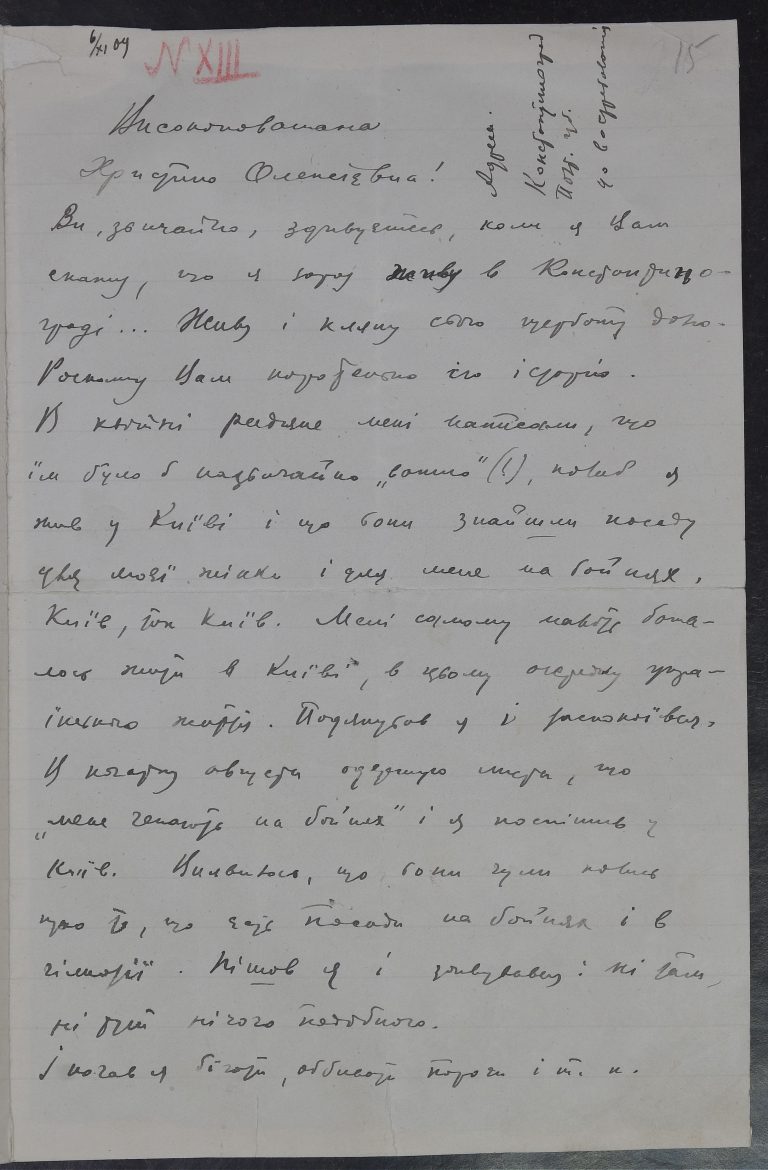 6/XI 04
N XIII
15
Адреса:
Константиноград
Полт. губ.
до востребования
Високоповажана
Христино Олексіївна!
Ви, звичайно, здивуєтесь, коли я Вам
скажу, що я зараз живу в Константино-
граді... Живу і кляну свою щербату долю.
Роскажу Вам коротенько сю історію.
В квітні родичі мені написали, що
їм було б надзвичайно „важно" (!), коли б я
жив у Київі і що вони знайшли посаду
для моєї жінки і для мене на бойнях.
Київ, так Київ. Мені самому навіть бажа-
лось жити в Київі, в цьому осередку укра-
їнського життя. Подякував я і заспокоївся.
В початку августа одержую листа, що
„мене чекають на бойнях" і я поспішив у
Київ. Виявилось, що вони чули колись
про те, що єсть посади на бойнях і в
гімназії. Пішов я і довідавсь: ні там,
ні тут нічого подобного.
І почав я бігати, оббивати пороги і т. п.